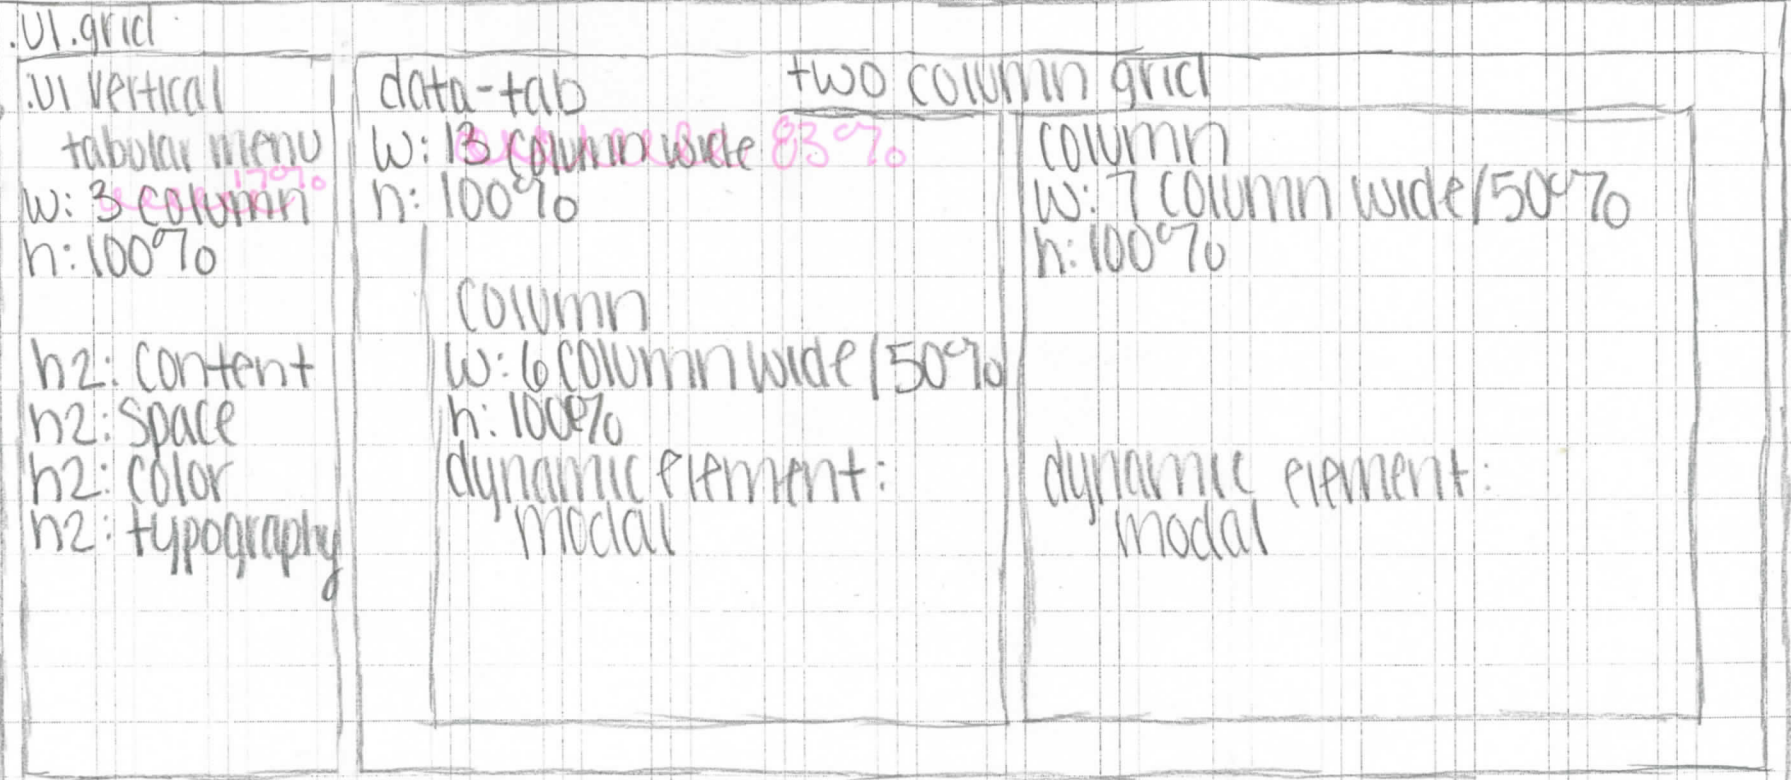 .UI.grid
.UI vertical
tabular menu
w: 3 column 17%
h: 100%
h2: content
h2: space
h2: color
h2: typography
data-tab
w: 13 column wide 83%
h: 100%
two column grid
column
w: 6 column wide/50%
h: 100%
dynamic element:
modal
column
w: 7 column wide/50%
h: 100%
dynamic element:
modal